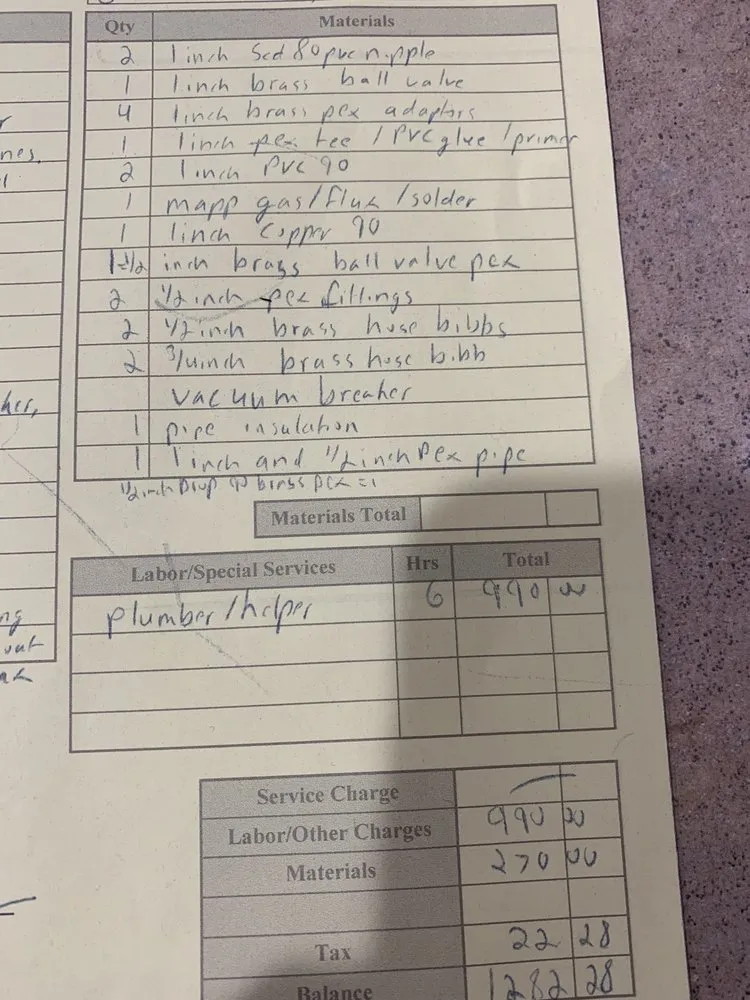 Qty Materials
2 1 inch Scd 80 pvc nipple
1 1 inch brass ball valve
4 1 inch brass pex adaptors
1 1 inch pex tee / PVC glue / primer
2 1 inch PVC 90
1 mapp gas/flux/solder
1 1 inch Copper 90
1 1/2 inch brass ball valve pex
2 1/2 inch pex fittings
2 1/2 inch brass hose bibbs
2 3/4 inch brass hose bibb
vacuum breaker
1 pipe insulation
1 1 inch and 1/2 inch Pex pipe
1/2 inch Drop 90 brass pex = 1
Materials Total
Labor/Special Services Hrs Total
plumber/helper 6 990 00
Service Charge
Labor/Other Charges 990 00
Materials 270 00
Tax 22 28
Balance 1282 28